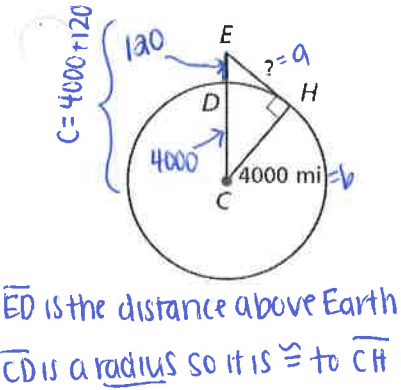 C = 4000 + 120
120
E
? = a
D
H
4000
4000 mi = b
C
ED is the distance above Earth
CD is a radius so it is ≅ to CH